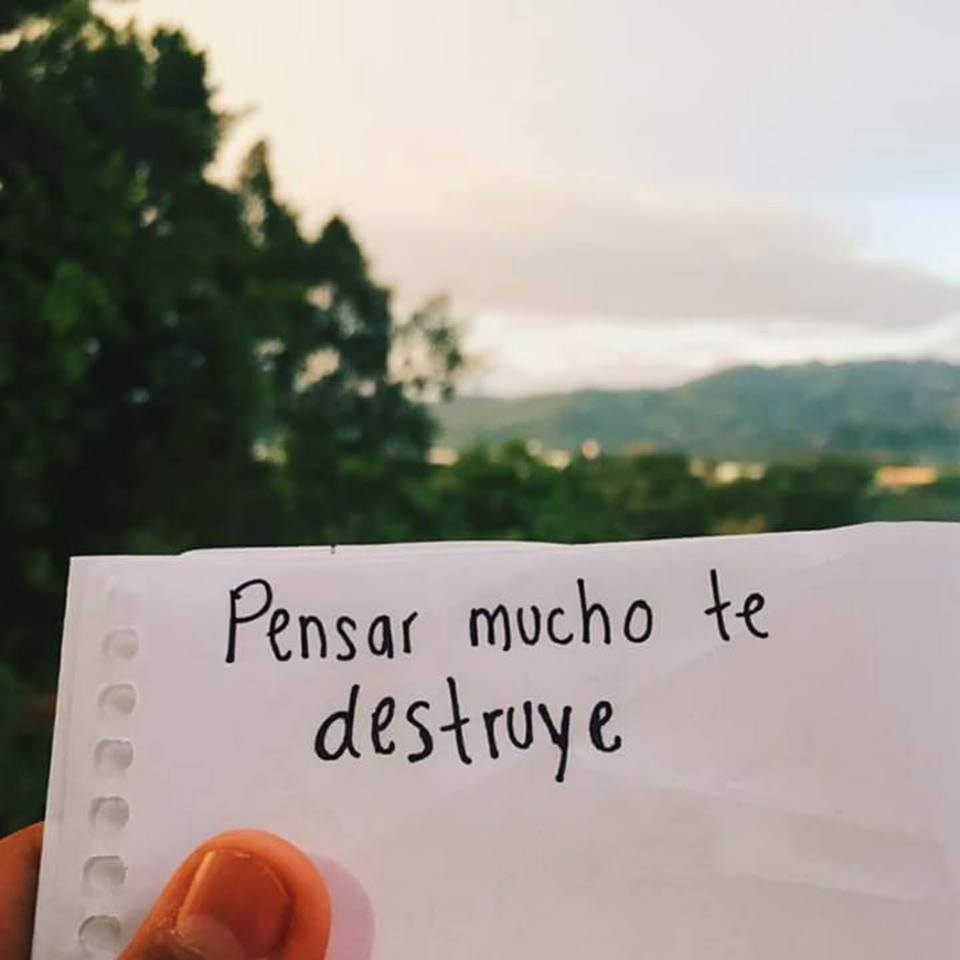 Pensar mucho te
destruye